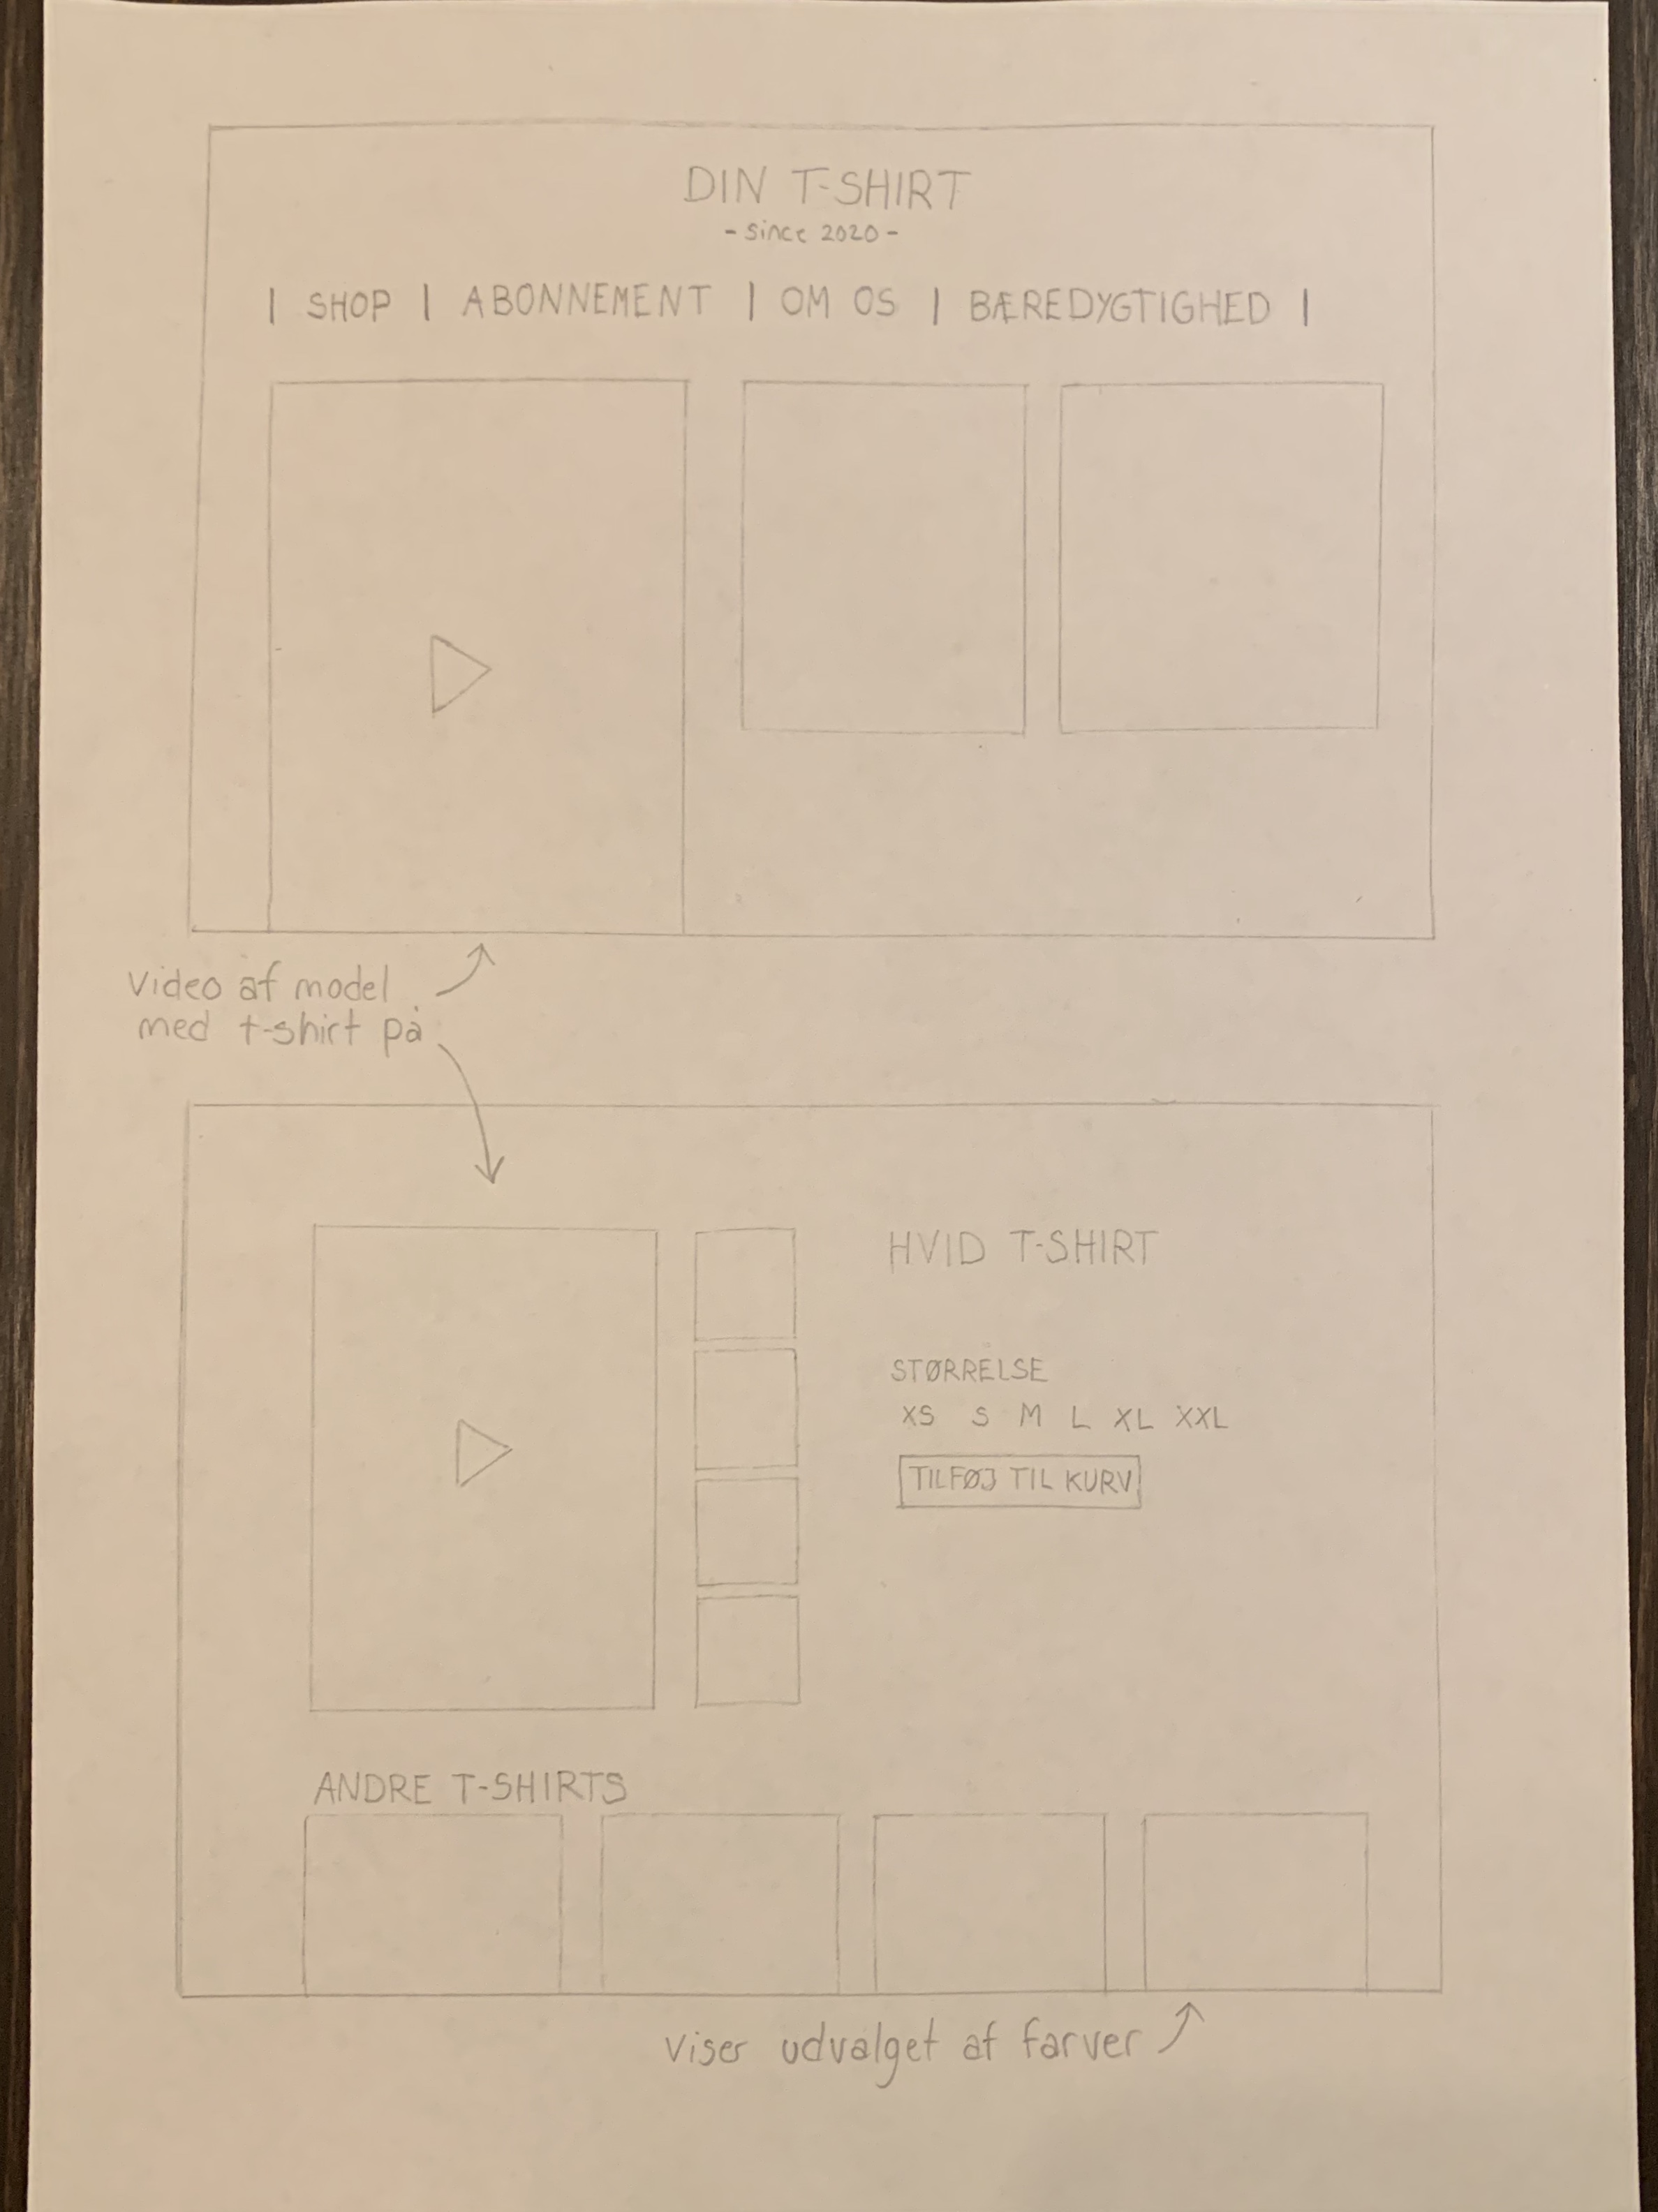 DIN T-SHIRT
- since 2020 -
| SHOP | ABONNEMENT | OM OS | BÆREDYGTIGHED |
Video af model
med t-shirt på
HVID T-SHIRT
STØRRELSE
XS S M L XL XXL
TILFØJ TIL KURV
ANDRE T-SHIRTS
Viser udvalget af farver